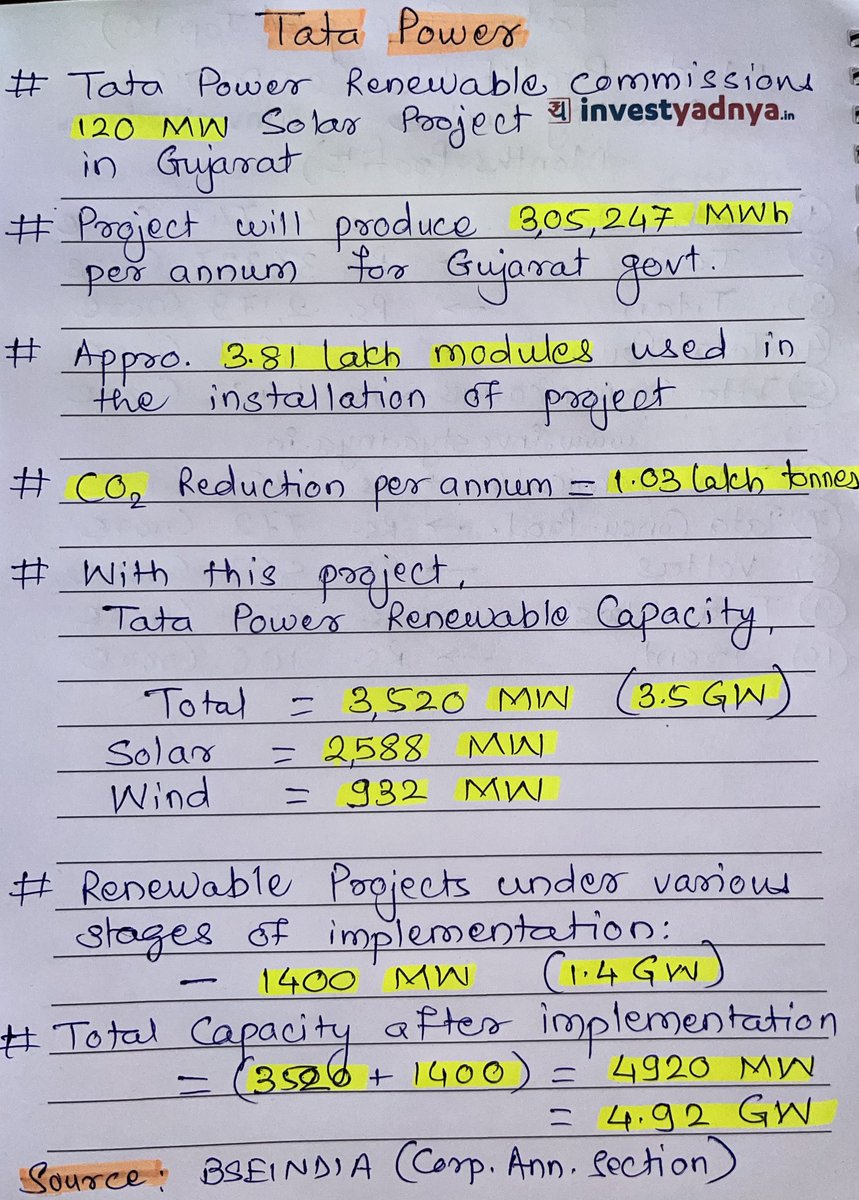 Tata Power
# Tata Power Renewable commissions
120 MW Solar Project य investyadnya.in
in Gujarat
# Project will produce 3,05,247 MWh
per annum for Gujarat govt.
# Appro. 3.81 lakh modules used in
the installation of project
# CO₂ Reduction per annum = 1.03 lakh tonnes
# With this project,
Tata Power Renewable Capacity,
Total = 3,520 MW (3.5 GW)
Solar = 2,588 MW
Wind = 932 MW
# Renewable Projects under various
stages of implementation:
- 1400 MW (1.4 GW)
# Total Capacity after implementation
= (3520 + 1400) = 4920 MW
= 4.92 GW
Source: BSEINDIA (Corp. Ann. Section)